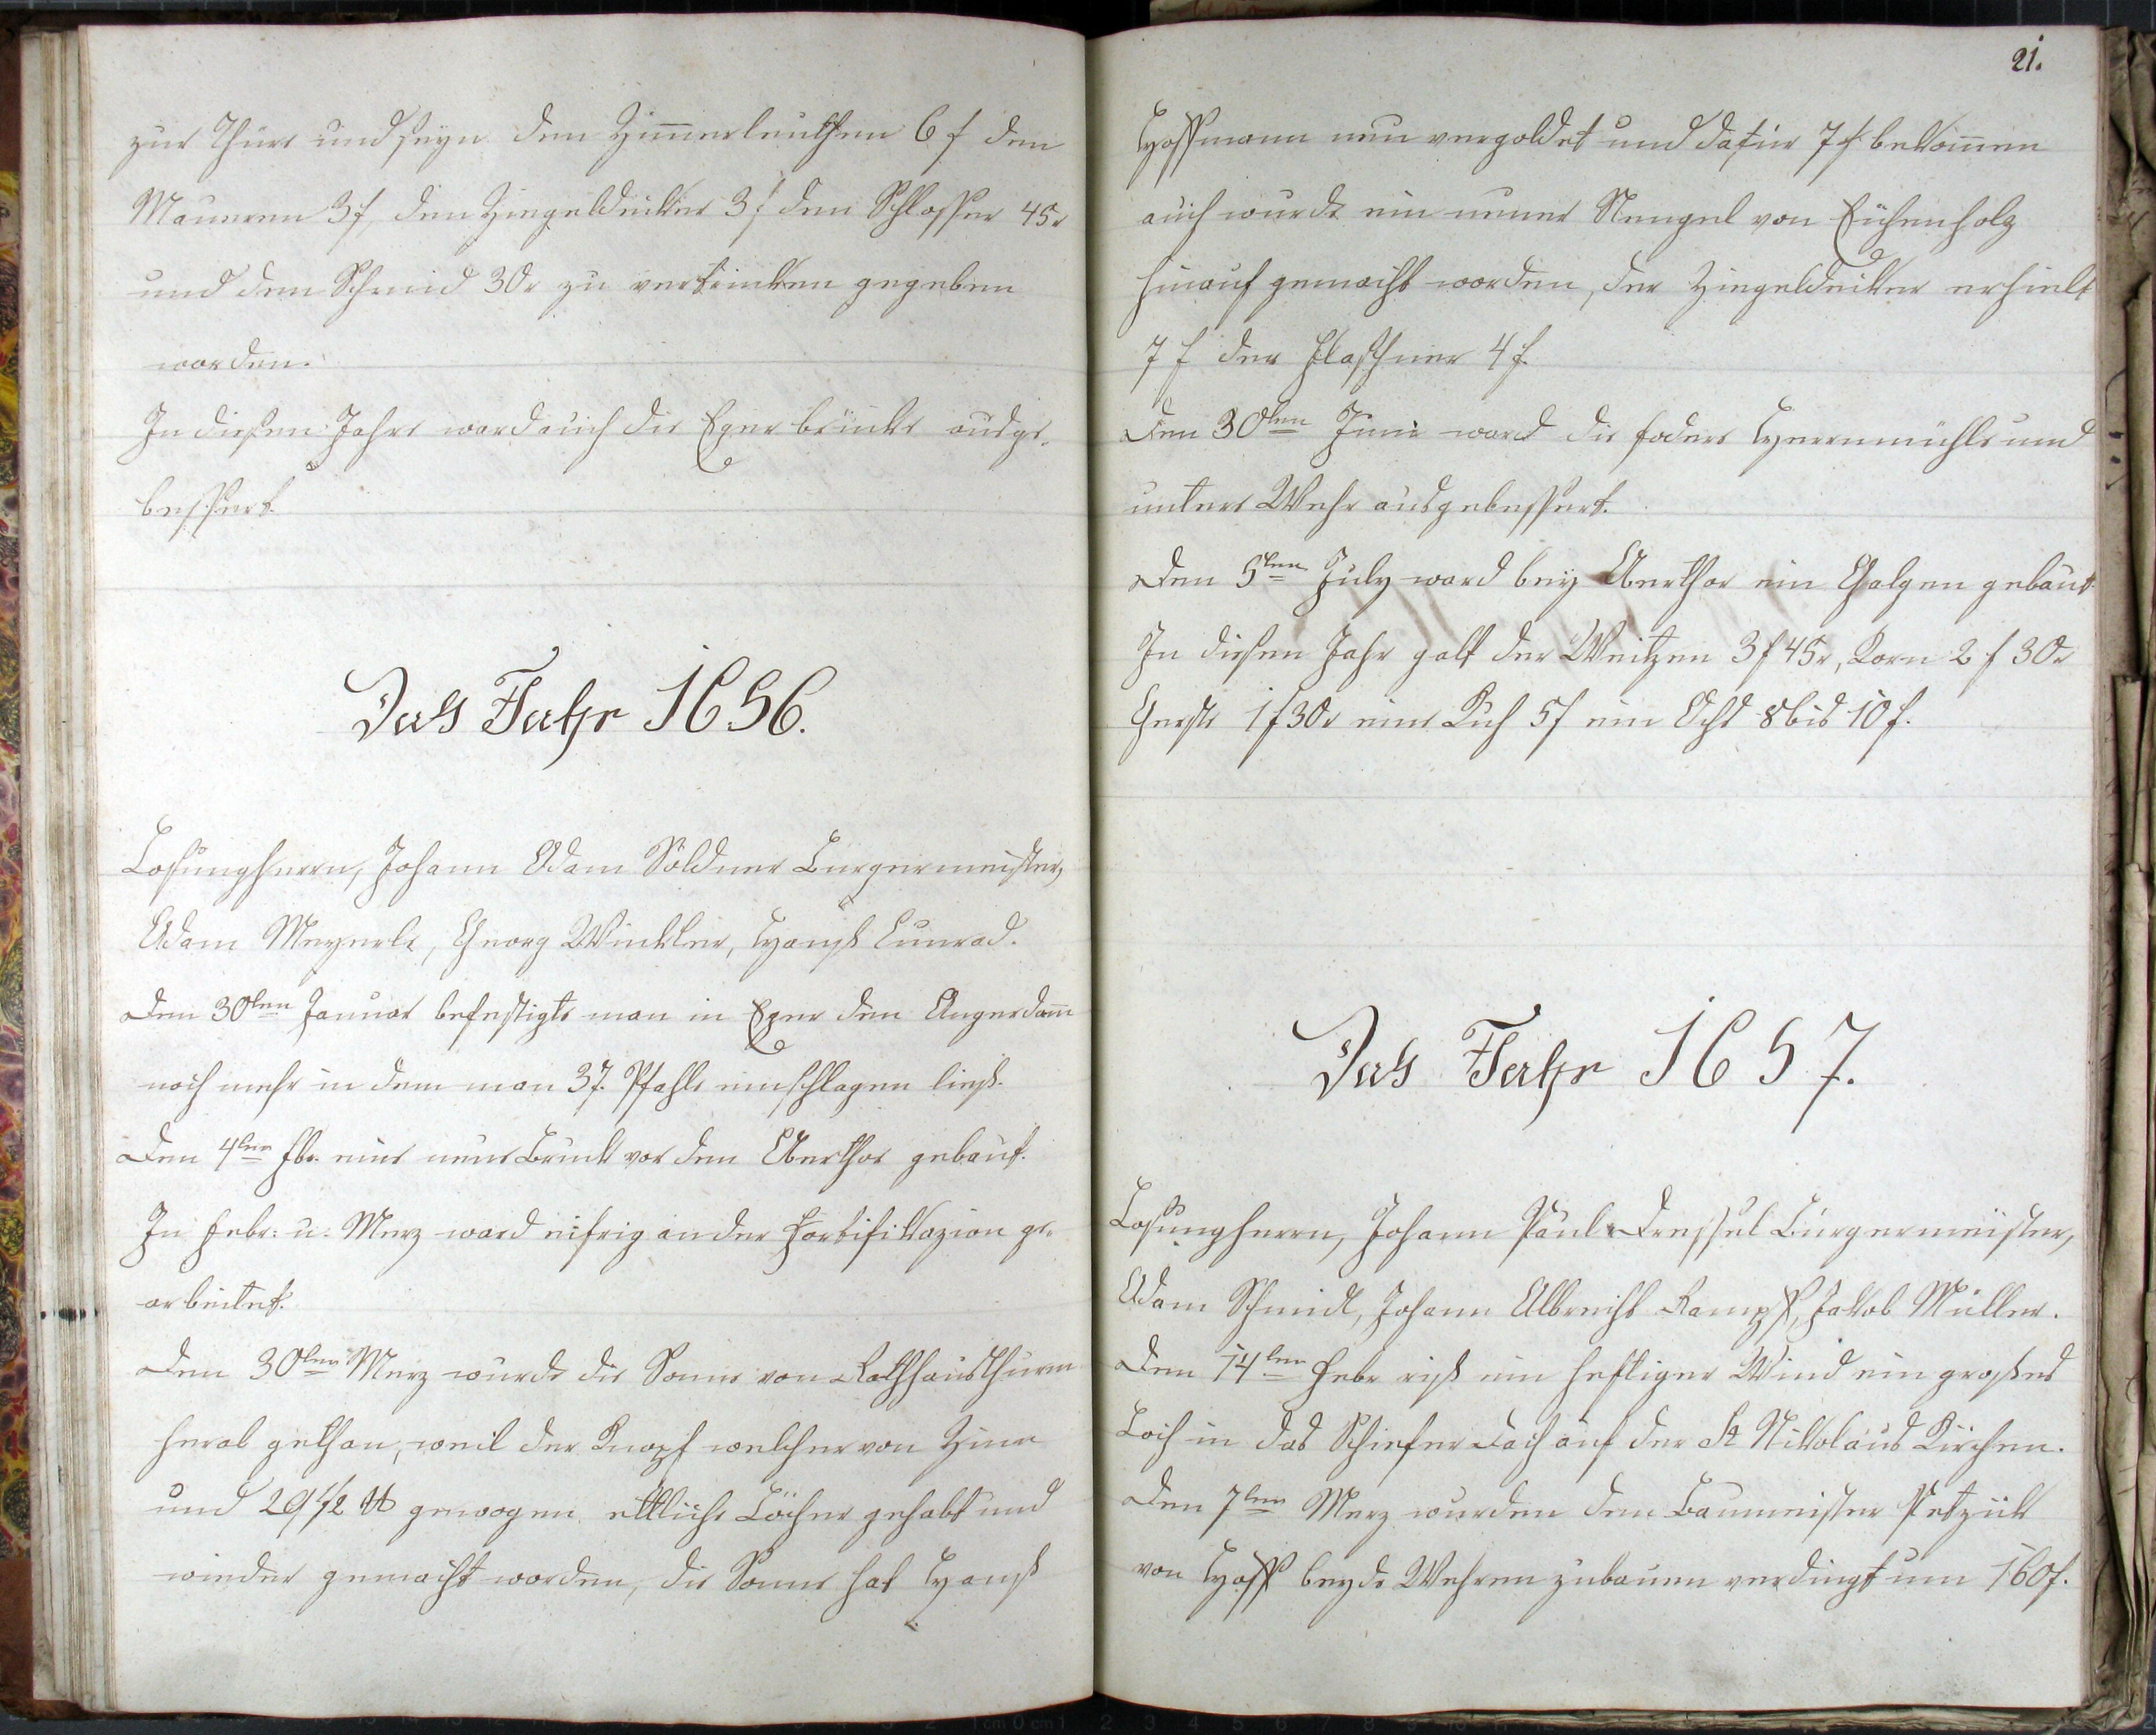 zur Thüre und seyn den Zim̅erleuthen 6 f den
Maurern 3 f, den Ziegeldecker 3 f den Schlosser 45r
und dem Schmid 30r zu vertrinken gegeben
worden.
In diesem Jahre ward auch die Eger brücke ausge-
bessert.
Das Jahr 1656.
Losungherrn, Johann Adam Söldner Burgermeister,
Adam Meyerle, Georg Winkler, Hanß Cunrad.
Den 30ten Januar befestigte man in Eger den Angerdam̅
noch mehr in dem man 37. Pfahle einschlagen ließ.
Den 4ten Fbr. eine neue Bruck vor dem Oberthor gebaut.
In Febr: u: Merz ward eifrig an der Fortifikazion ge-
arbeitet.
Den 30ten Merz wurde die Sonne von Rathhausthurm
herab gethan, weil der Knopf welcher von Zinn
und 29 1/2 ℔ gewogen ettliche Löcher gehabt und
wieder gemacht worden, die Sonne hat Hanß
21.
Hoffmann neu vergoldet und dafür 7 f bekom̅en
auch wurde ein neuer Stengel von Eichenholz
hinauf gemacht worden, der Ziegeldecker erhielt
7 f der Flaschner 4 f.
Den 30ten Junie ward die fodere Herrnmühle und
untere Wehr ausgebessert.
Den 5ten July ward beÿ Oberthor ein Galgen gebaut.
In diesen Jahr galt der Weitzen 3 f 45r, Korn 2 f 30r
Gerste 1 f 30r eine Kuh 5 f ein Ochs 8 bis 10 f.
Das Jahr 1657.
Losungherrn, Johann Paul Dressel Burgermeister,
Adam Schmidl, Johann Albrecht Rampf, Jakob Müller.
Den 14ten Febr riß ein heftiger Wind ein großes
Loch in das Schiefer Dach auf der St Nikolaus Kirchen.
Den 7ten Merz wurden dem Baumeister Petzück
von Hoff beyde Wehren zubauen verdingt um 160 f.